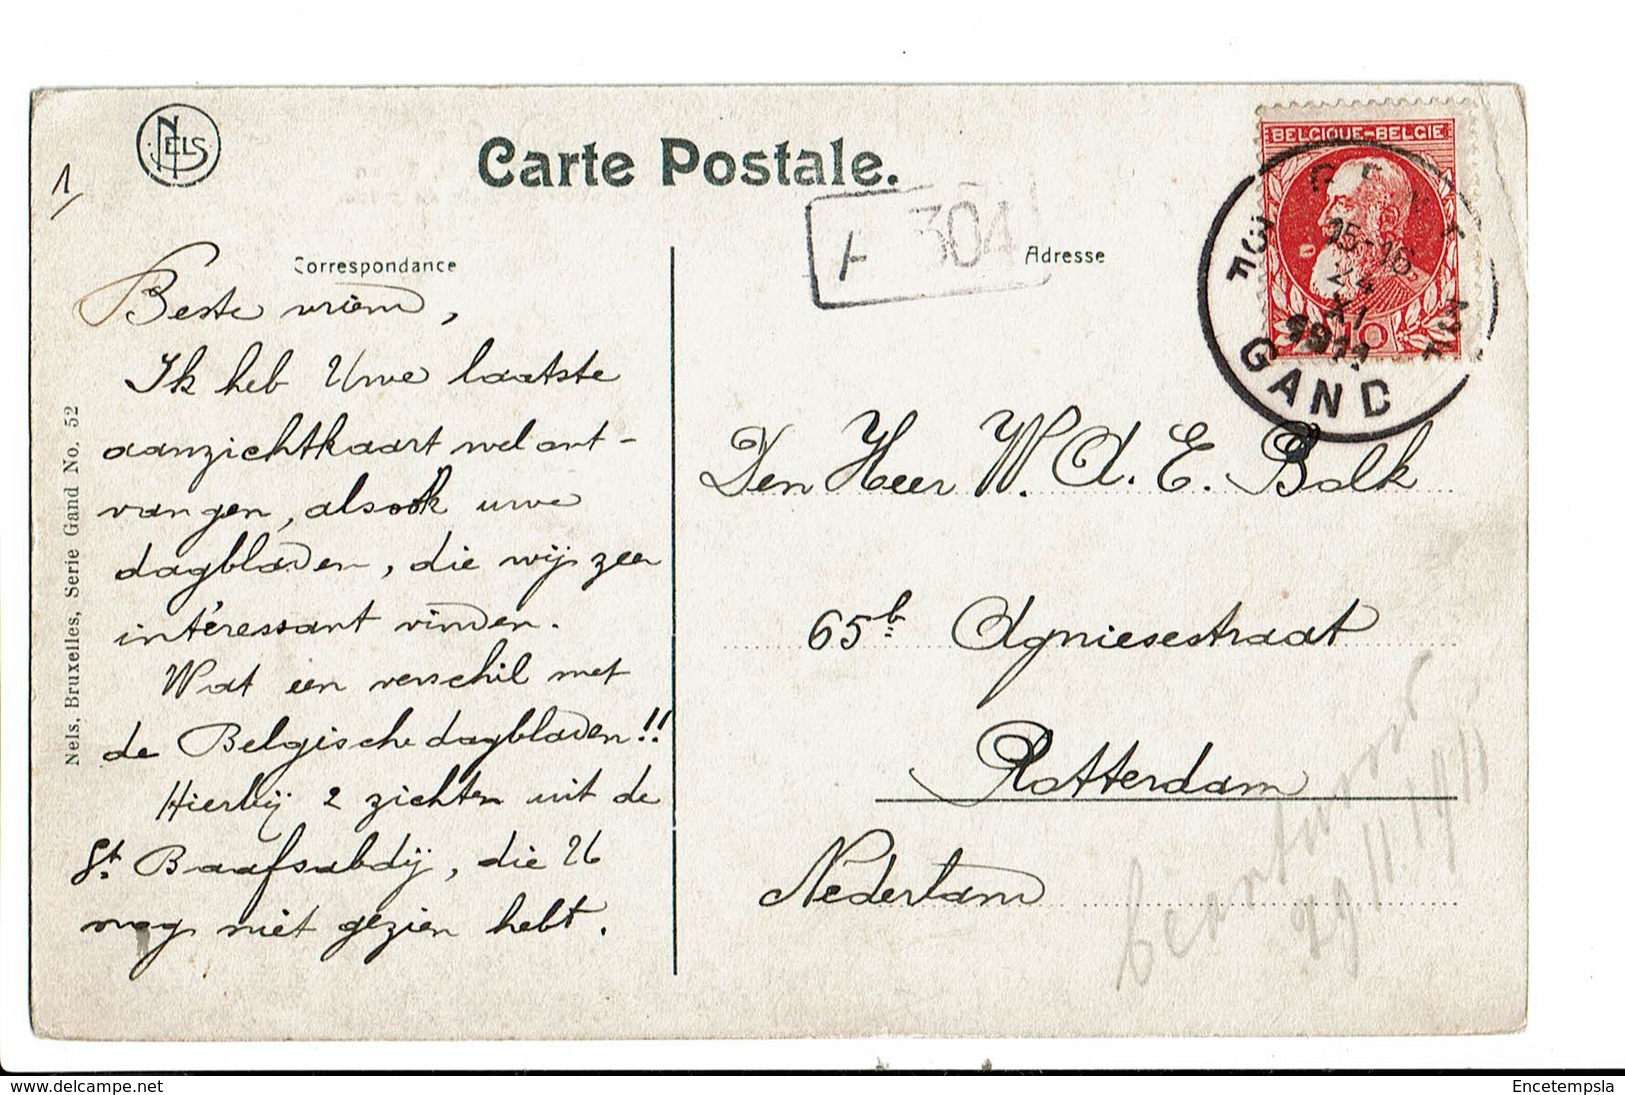 NELS
1
Carte Postale.
304
Correspondance
Adresse
BELGIQUE-BELGIE
10
GENT
15-16
24
XI
1911
GAND
Beste vriend,
Ik heb Uwe laatste
aanzichtkaart wel ont-
vangen, alsook uwe
dagbladen, die wij zeer
intéressant vinden.
Wat een verschil met
de Belgische dagbladen!!
Hierbij 2 zichten uit de
St. Baafsabdij, die U
nog niet gezien hebt.
Den Heer W. A. E. Balk
65b Agniesestraat
Rotterdam
Nederland
29.11.1911
Nels, Bruxelles, Serie Gand No. 52
www.delcampe.net
Encetempsla